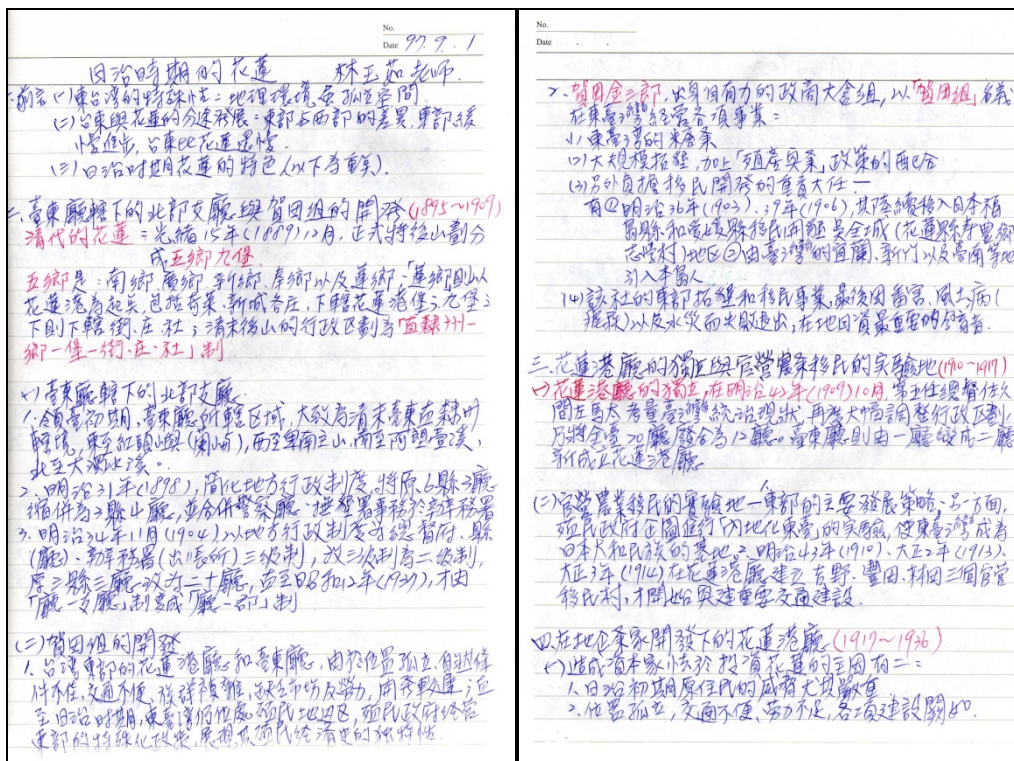 No.
Date 97.9.1
日治時期的花蓮 林玉茹老師.
一.前言(一)東台灣的特殊性:地理環境.孤立空間
(二)台東與花蓮的分途發展:東部與西部的差異,東部緩
慢進步,台東比花蓮還慢.
(三)日治時期花蓮的特色(以下為重点).
二.臺東廳轄下的北部支廳與賀田組的開發(1895~1909)
清代的花蓮:光緒15年(1889)12月,正式將後山劃分
成五鄉九堡.
五鄉是:南鄉.廣鄉.新鄉.奉鄉以及蓮鄉.「蓮鄉則以
花蓮港為起矣,包括奇萊.新城各庄,下轄花蓮港堡;九堡;
下則下轄街.庄.社;清末後山的行政区劃為「直隸州—
鄉—堡—街.庄.社」制
(一)臺東廳轄下的北部支廳.
1.領臺初期,臺東廳所轄区域,大致為清末臺東直隸州
轄境,東至紅頭嶼(蘭嶼),西至卑南主山,南至阿塱壹溪、
北至大濁水溪。
2.明治31年(1898),簡化地方行政制度,將原6縣3廳
縮併為3縣4廳,並合併警察廳、撫墾署事務於弁務署
3.明治34年11月(1904),以地方行政制度為總督府、縣
(廳)、弁務署(出張所)三級制,改三級制為二級制,
廢三縣三廳改為二十廳,直至昭和12年(1937),才由
「廳—支廳」制變成「廳—郡」制
(二)賀田組的開發
1.台灣東部的花蓮港廳和臺東廳,由於位置孤立.自然條
件不佳.交通不便.族群複雜.缺乏市場及勞力,開發較遲;迨
至日治時期,東臺灣仍位處殖民地边区,殖民政府經營
東部的特殊化政策,展現其殖民經濟史的独特性.
No.
Date
2.賀田金三郎,出身自有力的政商大倉組,以「賀田組」名義
在東臺灣經營各項事業:
(1)東臺灣的糖業
(2)大規模拓墾,加上「殖產興業」政策的配合
(3)另外負擔移民開發的重責大任—
有①明治36年(1903)、39年(1906),其陸續移入日本福
島縣和愛媛縣移民開墾吳全城(花蓮縣壽豐鄉
志學村)地区②由臺灣的宜蘭、新竹以及臺南等地
引入本島人
(4)該社的東部拓墾和移民事業,最後因番害.風土病(
瘧疾)以及水災而失敗退出,在地日資最重要的
三.花蓮港廳的獨立與官營農業移民的实驗地(1910~1917)
(一)花蓮港廳的獨立,在明治42年(1909)10月,第五任總督佐久
間左馬太考量臺灣統治現狀,再為大幅調整行政区劃,
乃將全臺20廳廢合為12廳。臺東廳則由一廳變成二廳
新成立花蓮港廳
(二)官營農業移民的實驗地—東部的主要發展策略,另一方面,
殖民政府企圖進行「內地化東臺」的实驗,使東臺灣成為
日本大和民族的基地,2.明治43年(1910)、大正2年(1913)、
大正3年(1914)在花蓮港廳建立吉野、豐田、林田三個官營
移民村,才開始興建重要交通建設.
四.在地企業家開發下的花蓮港廳(1917~1936)
(一)造成資本家怯於投資花蓮的主因有二:
1.日治初期原住民的威脅尤其嚴重
2.位置孤立,交通不便、勞力不足,各項建設闕如.